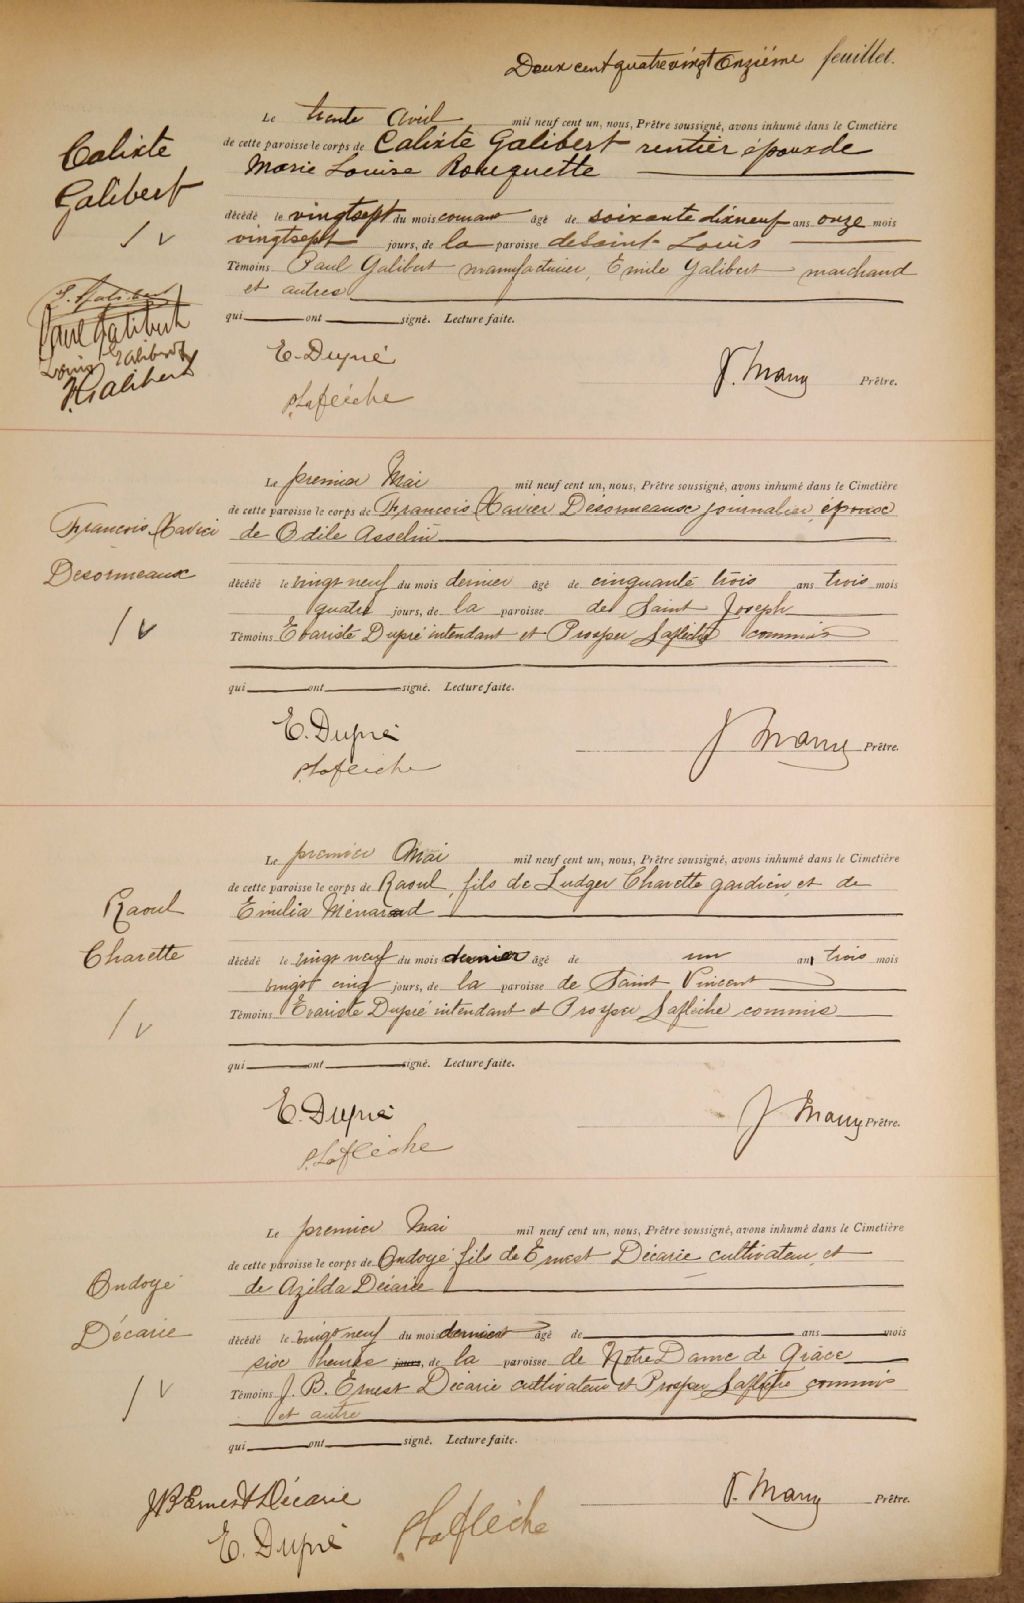 Deux cent quatre vingt onzième feuillet.
Calixte
Galibert
Le trente Avril mil neuf cent un, nous, Prêtre soussigné, avons inhumé dans le Cimetière
de cette paroisse le corps de Calixte Galibert rentier époux de
Marie Louise Rouquette
décédé le vingt sept du mois courant âgé de soixante dix neuf ans onze mois
vingt sept jours, de la paroisse de Saint-Louis
Témoins Paul Galibert manufacturier, Emile Galibert marchand
et autres
qui ont signé. Lecture faite.
Paul Galibert
Louis Galibert
Galibert
E. Dupré
P. Lafleche
J. Marry Prêtre.
François Xavier
Desormeaux
Le premier Mai mil neuf cent un, nous, Prêtre soussigné, avons inhumé dans le Cimetière
de cette paroisse le corps de François Xavier Desormeaux journalier, époux
de Odile Asselin
décédé le vingt neuf du mois dernier âgé de cinquante trois ans trois mois
quatre jours, de la paroisse de Saint Joseph
Témoins Evariste Dupré intendant et Prosper Laflèche commis
qui ont signé. Lecture faite.
E. Dupré
P. Lafleche
J Marry Prêtre.
Raoul
Charette
Le premier Mai mil neuf cent un, nous, Prêtre soussigné, avons inhumé dans le Cimetière
de cette paroisse le corps de Raoul, fils de Ludger Charette gardien, et de
Emilia Ménard
décédé le vingt neuf du mois dernier âgé de un an trois mois
vingt cinq jours, de la paroisse de Saint Vincent
Témoins Evariste Dupré intendant et Prosper Laflèche commis
qui ont signé. Lecture faite.
E. Dupré
P. Laflèche
J Marry Prêtre.
Ondoyé
Décarie
Le premier Mai mil neuf cent un, nous, Prêtre soussigné, avons inhumé dans le Cimetière
de cette paroisse le corps de Ondoyé, fils de Ernest Décarie cultivateur, et
de Azilda Décarie
décédé le vingt neuf du mois dernier âgé de ans mois
six heures jours, de la paroisse de Notre Dame de Grâce
Témoins J. B. Ernest Décarie cultivateur et Prosper Laflèche commis
et autre
qui ont signé. Lecture faite.
J B Ernest Décarie
E. Dupré
P. Laflèche
J. Marry Prêtre.